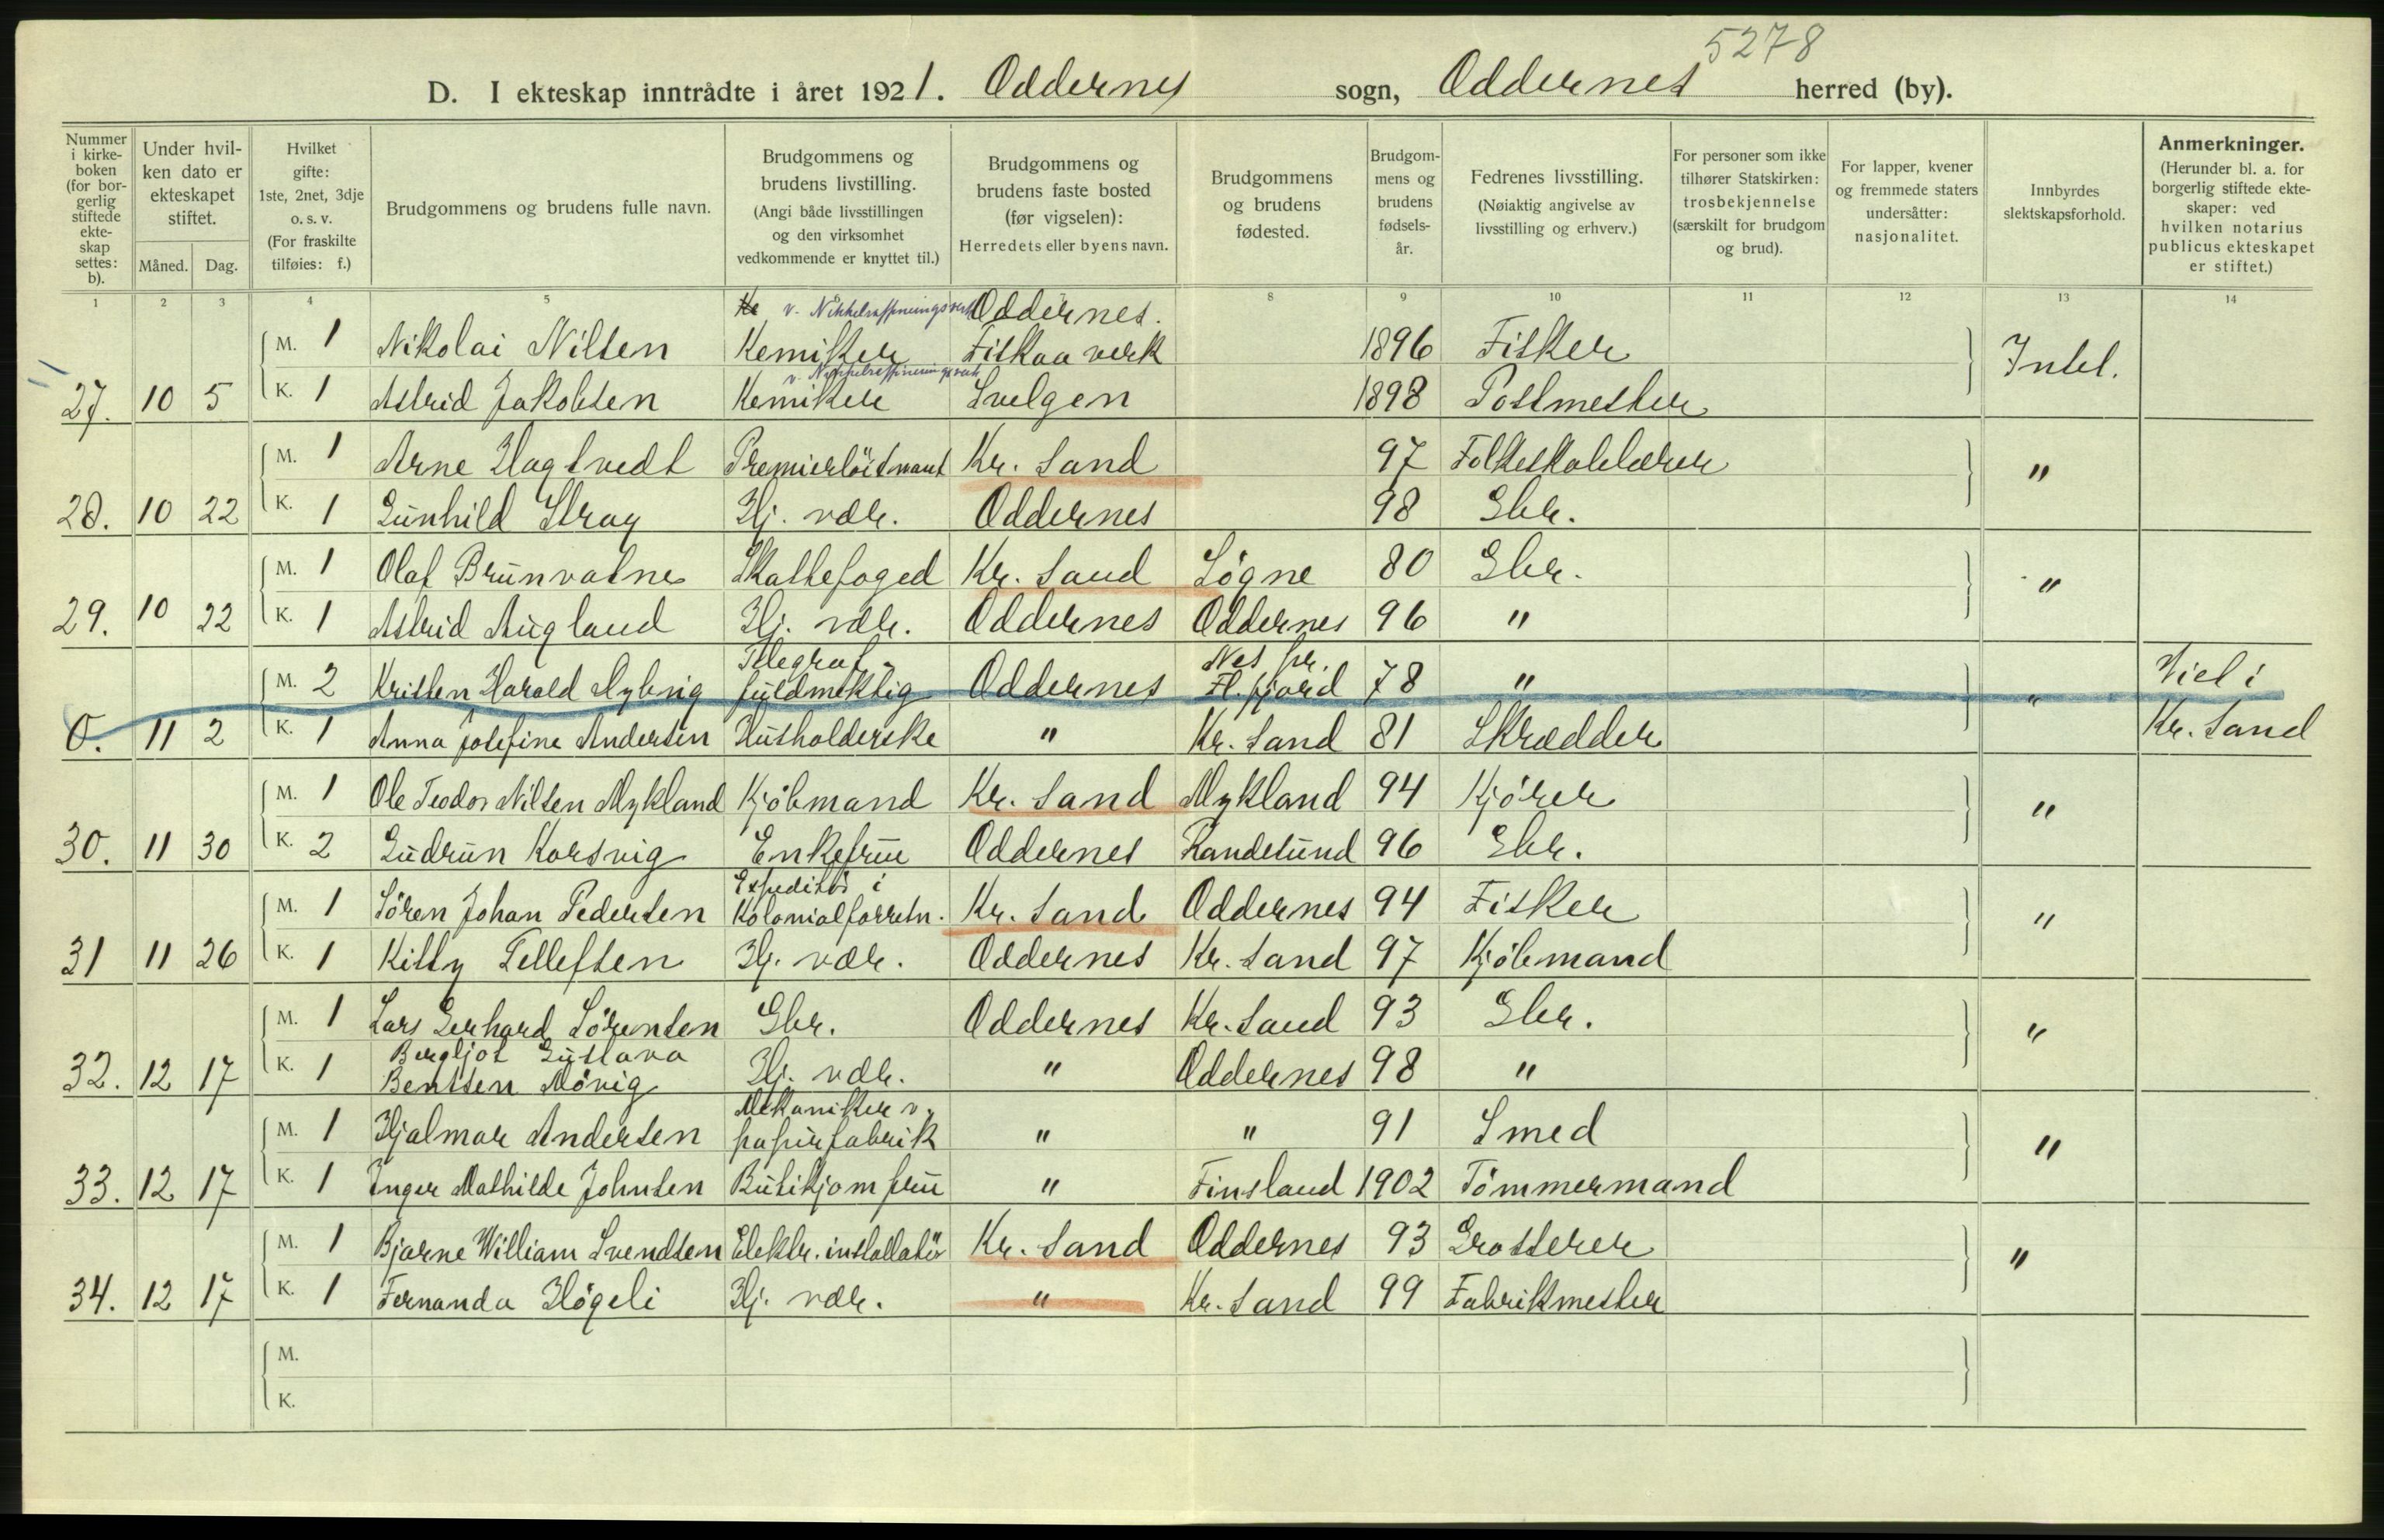 5278
D. I ekteskap inntrådte i året 1921. Oddernes sogn, Oddernes herred (by).
Nummer i kirke-boken (for bor-gerlig stiftede ekte-skap settes: b).
Under hvil-ken dato er ekteskapet stiftet.
Måned. Dag.
Hvilket gifte: 1ste, 2net, 3dje o. s. v. (For fraskilte tilføies: f.)
Brudgommens og brudens fulle navn.
Brudgommens og brudens livstilling. (Angi både livsstillingen og den virksomhet vedkommende er knyttet til.)
Brudgommens og brudens faste bosted (før vigselen): Herredets eller byens navn.
Brudgommens og brudens fødested.
Brudgom-mens og brudens fødsels-år.
Fedrenes livsstilling. (Nøiaktig angivelse av livsstilling og erhverv.)
For personer som ikke tilhører Statskirken: trosbekjennelse (særskilt for brudgom og brud).
For lapper, kvener og fremmede staters undersåtter: nasjonalitet.
Innbyrdes slektskapsforhold.
Anmerkninger. (Herunder bl. a. for borgerlig stiftede ekte-skaper: ved hvilken notarius publicus ekteskapet er stiftet.)
1 2 3 4 5 8 9 10 11 12 13 14
Ke v. Nikkelraffineringsverk Oddernes.
M. 1 Nikolai Nilsen Kemiker Fiskaa verk 1896 Fisker Intet.
v. Nikkelraffineringsverk
27. 10 5 K. 1 Astrid Jakobsen Kemiker Svelgen 1898 Postmester
M. 1 Arne Hagtvedt Premierløitnant Kr. Sand 97 Folkeskolelærer "
28. 10 22 K. 1 Gunhild Stray Hj. vær. Oddernes 98 Gbr.
M. 1 Olaf Brunvatne Skattefoged Kr. Sand Søgne 80 Gbr. "
29. 10 22 K. 1 Astrid Augland Hj. vær. Oddernes Oddernes 96 "
Telegraf- Nes pr.
M. 2 Kristen Harald Myhrig fuldmektig Oddernes Fl.fjord 78 " " Viet i
0. 11 2 K. 1 Anna Josefine Andersen Husholderske " Kr. Sand 81 Skrædder Kr. Sand
M. 1 Ole Teodor Nilsen Mykland Kjøbmand Kr. Sand Mykland 94 Kjører "
30. 11 30 K. 2 Gudrun Korsvig Enkefrue Oddernes Randesund 96 Gbr.
Expeditør i
M. 1 Søren Johan Pedersen Kolonialforretn. Kr. Sand Oddernes 94 Fisker "
31 11 26 K. 1 Kitty Tellefsen Hj. vær. Oddernes Kr. Sand 97 Kjøbmand
M. 1 Lars Gerhard Sørensen Gbr. Oddernes Kr. Sand 93 Gbr. "
Bergljot Gustava
32. 12 17 K. 1 Bentsen Møvig Hj. vær. " Oddernes 98 "
Mekaniker v.
M. 1 Hjalmar Andersen papirfabrik " " 91 Smed "
33. 12 17 K. 1 Inger Mathilde Johnsen Butikjomfru " Finsland 1902 Tømmermand
M. 1 Bjarne William Svendsen Elektr. installatør Kr. Sand Oddernes 93 Grosserer "
34. 12 17 K. 1 Fernanda Høgeli Hj. vær. " Kr. Sand 99 Fabrikmester
M.
K.